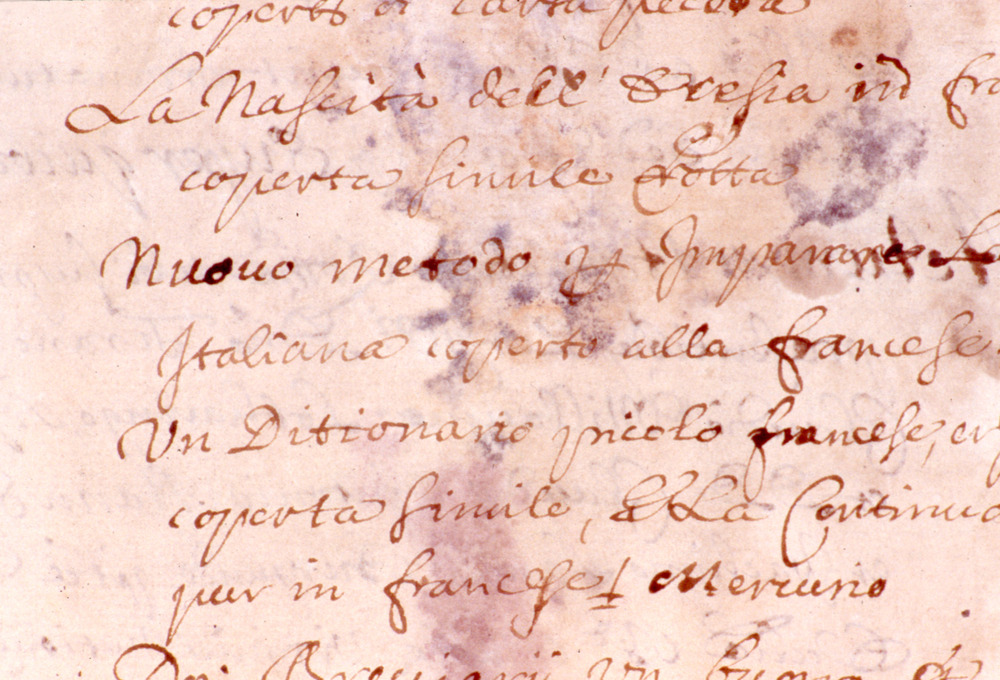 coperts di carta pecora
La Nascità dell' Eresia in fra
coperta simile Rotta
Nuovo metodo p Imparare La
Italiana coperto alla francese
Un Ditionario picolo francese, et
coperta simile, & La Continua
pur in francese Mercurio
Doi Breviarij un